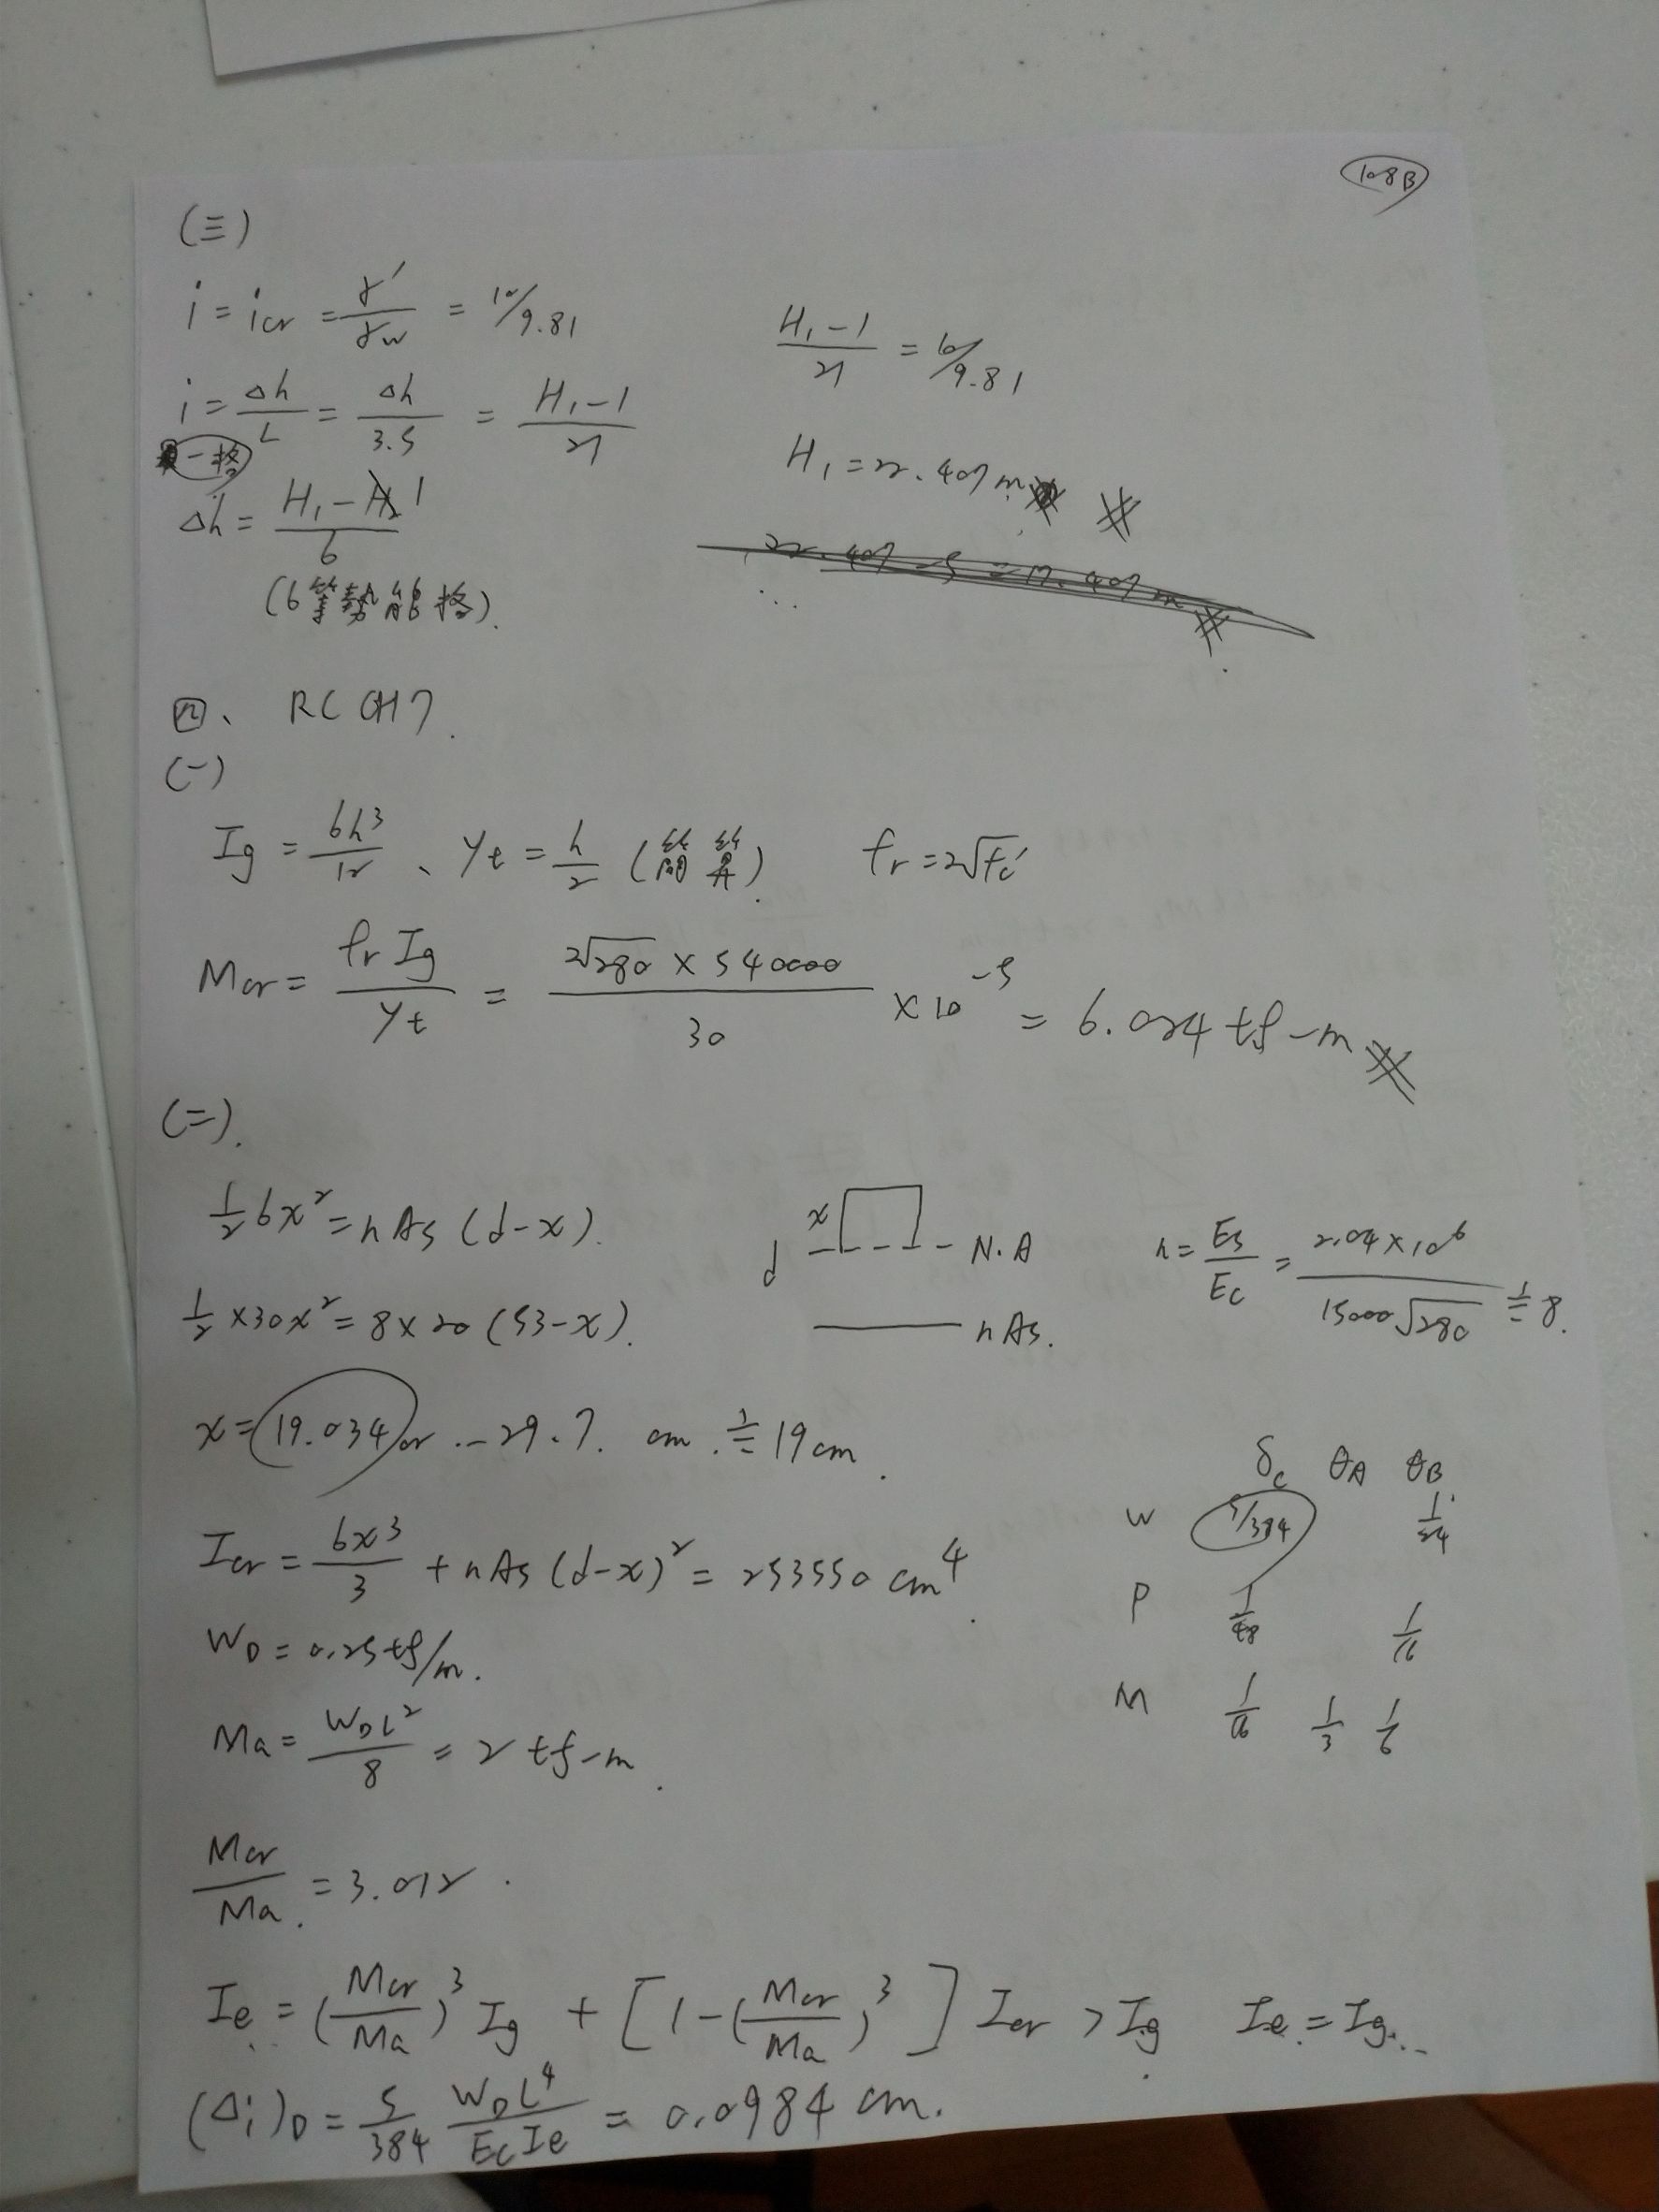 108B
(三)
i = icr = γ'/γw = 10/9.81
i = Δh/L = Δh/3.5 = (H₁-1)/21
一格
Δh = (H₁-1)/6
(6等勢能格).
(H₁-1)/21 = 10/9.81
H₁ = 22.407 m
22.407-5=17.407 m
...
四、 RC CH7.
(一)
Ig = bh³/12 、 yt = h/2 (簡算). fr = 2√fc'
Mcr = fr Ig / yt = (2√280 × 540000)/30 × 10⁻⁵ = 6.024 tf-m
(二).
½bx² = nAs (d-x).
½×30x² = 8×20 (53-x).
x
d
N.A
nAs.
n = Es/Ec = 2.04×10⁶/(15000√280) ≒ 8.
x = 19.034 or -29.7. cm. ≒ 19 cm.
Icr = bx³/3 + nAs (d-x)² = 253550 cm⁴.
WD = 0.25 tf/m.
Ma = WDL²/8 = 2 tf-m.
δc θA θB
W 5/384 1/24
P 1/48 1/16
M 1/16 1/3 1/6
Mcr/Ma = 3.012.
Ie = (Mcr/Ma)³ Ig + [1-(Mcr/Ma)³] Icr > Ig. Ie = Ig...
(Δi)D = 5/384 WDL⁴/EcIe = 0.0984 cm.